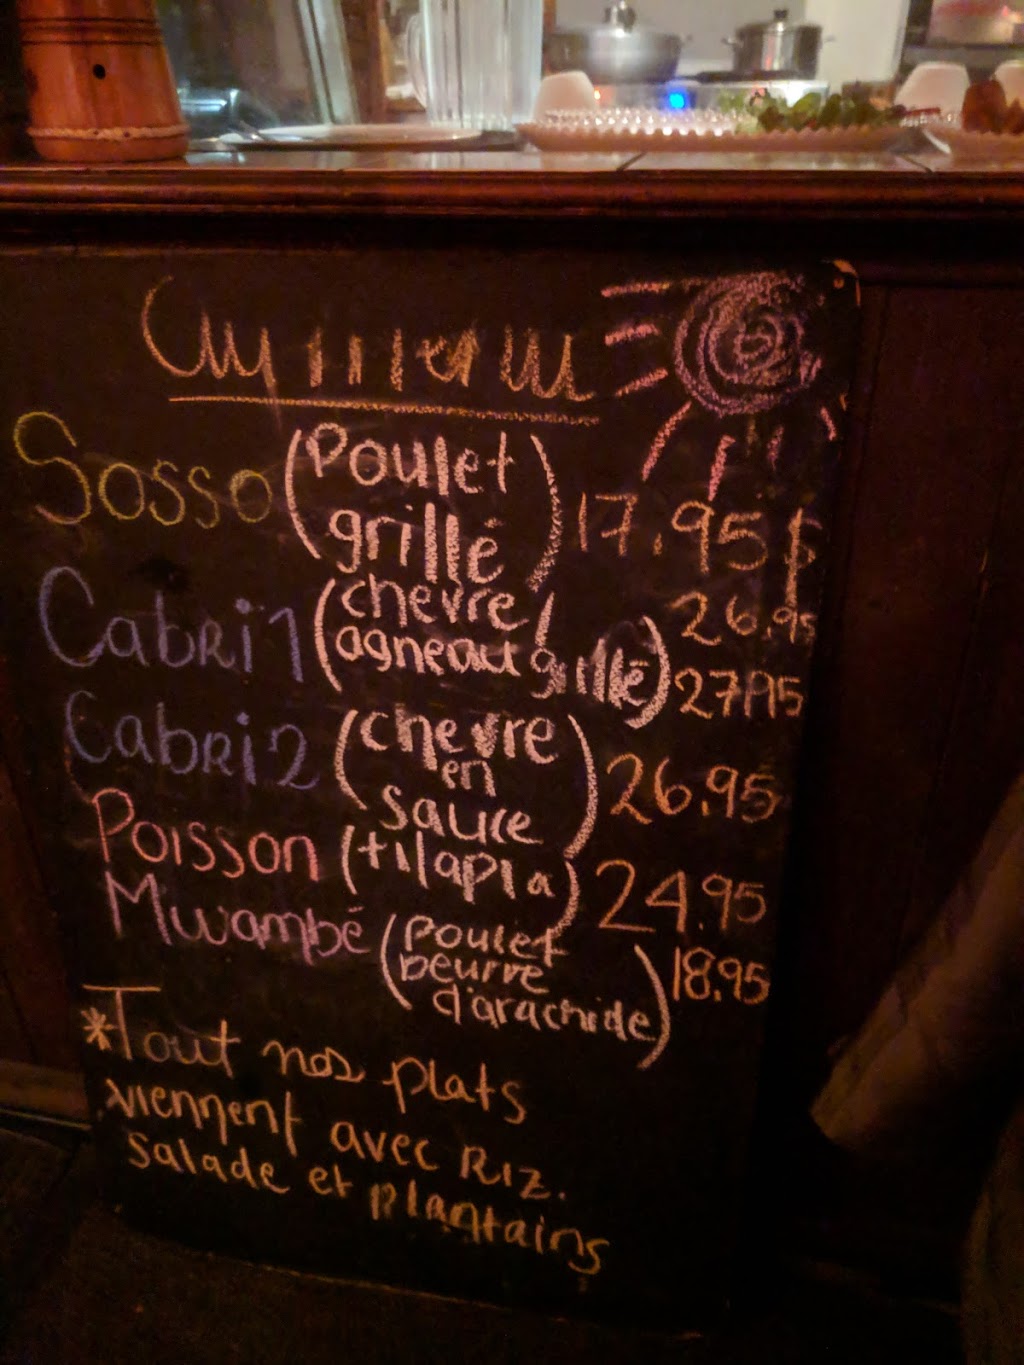 Au menu
Sosso (Poulet
grillé) 17.95$
Cabri 1 (chevre/ 26.95
agneau grillé) 27.95
Cabri 2 (chevre
en
sauce) 26.95
Poisson (tilapia) 24.95
Mwambé (poulet
beurre
d'arachide) 18.95
*Tout nos plats
viennent avec Riz.
salade et plantains